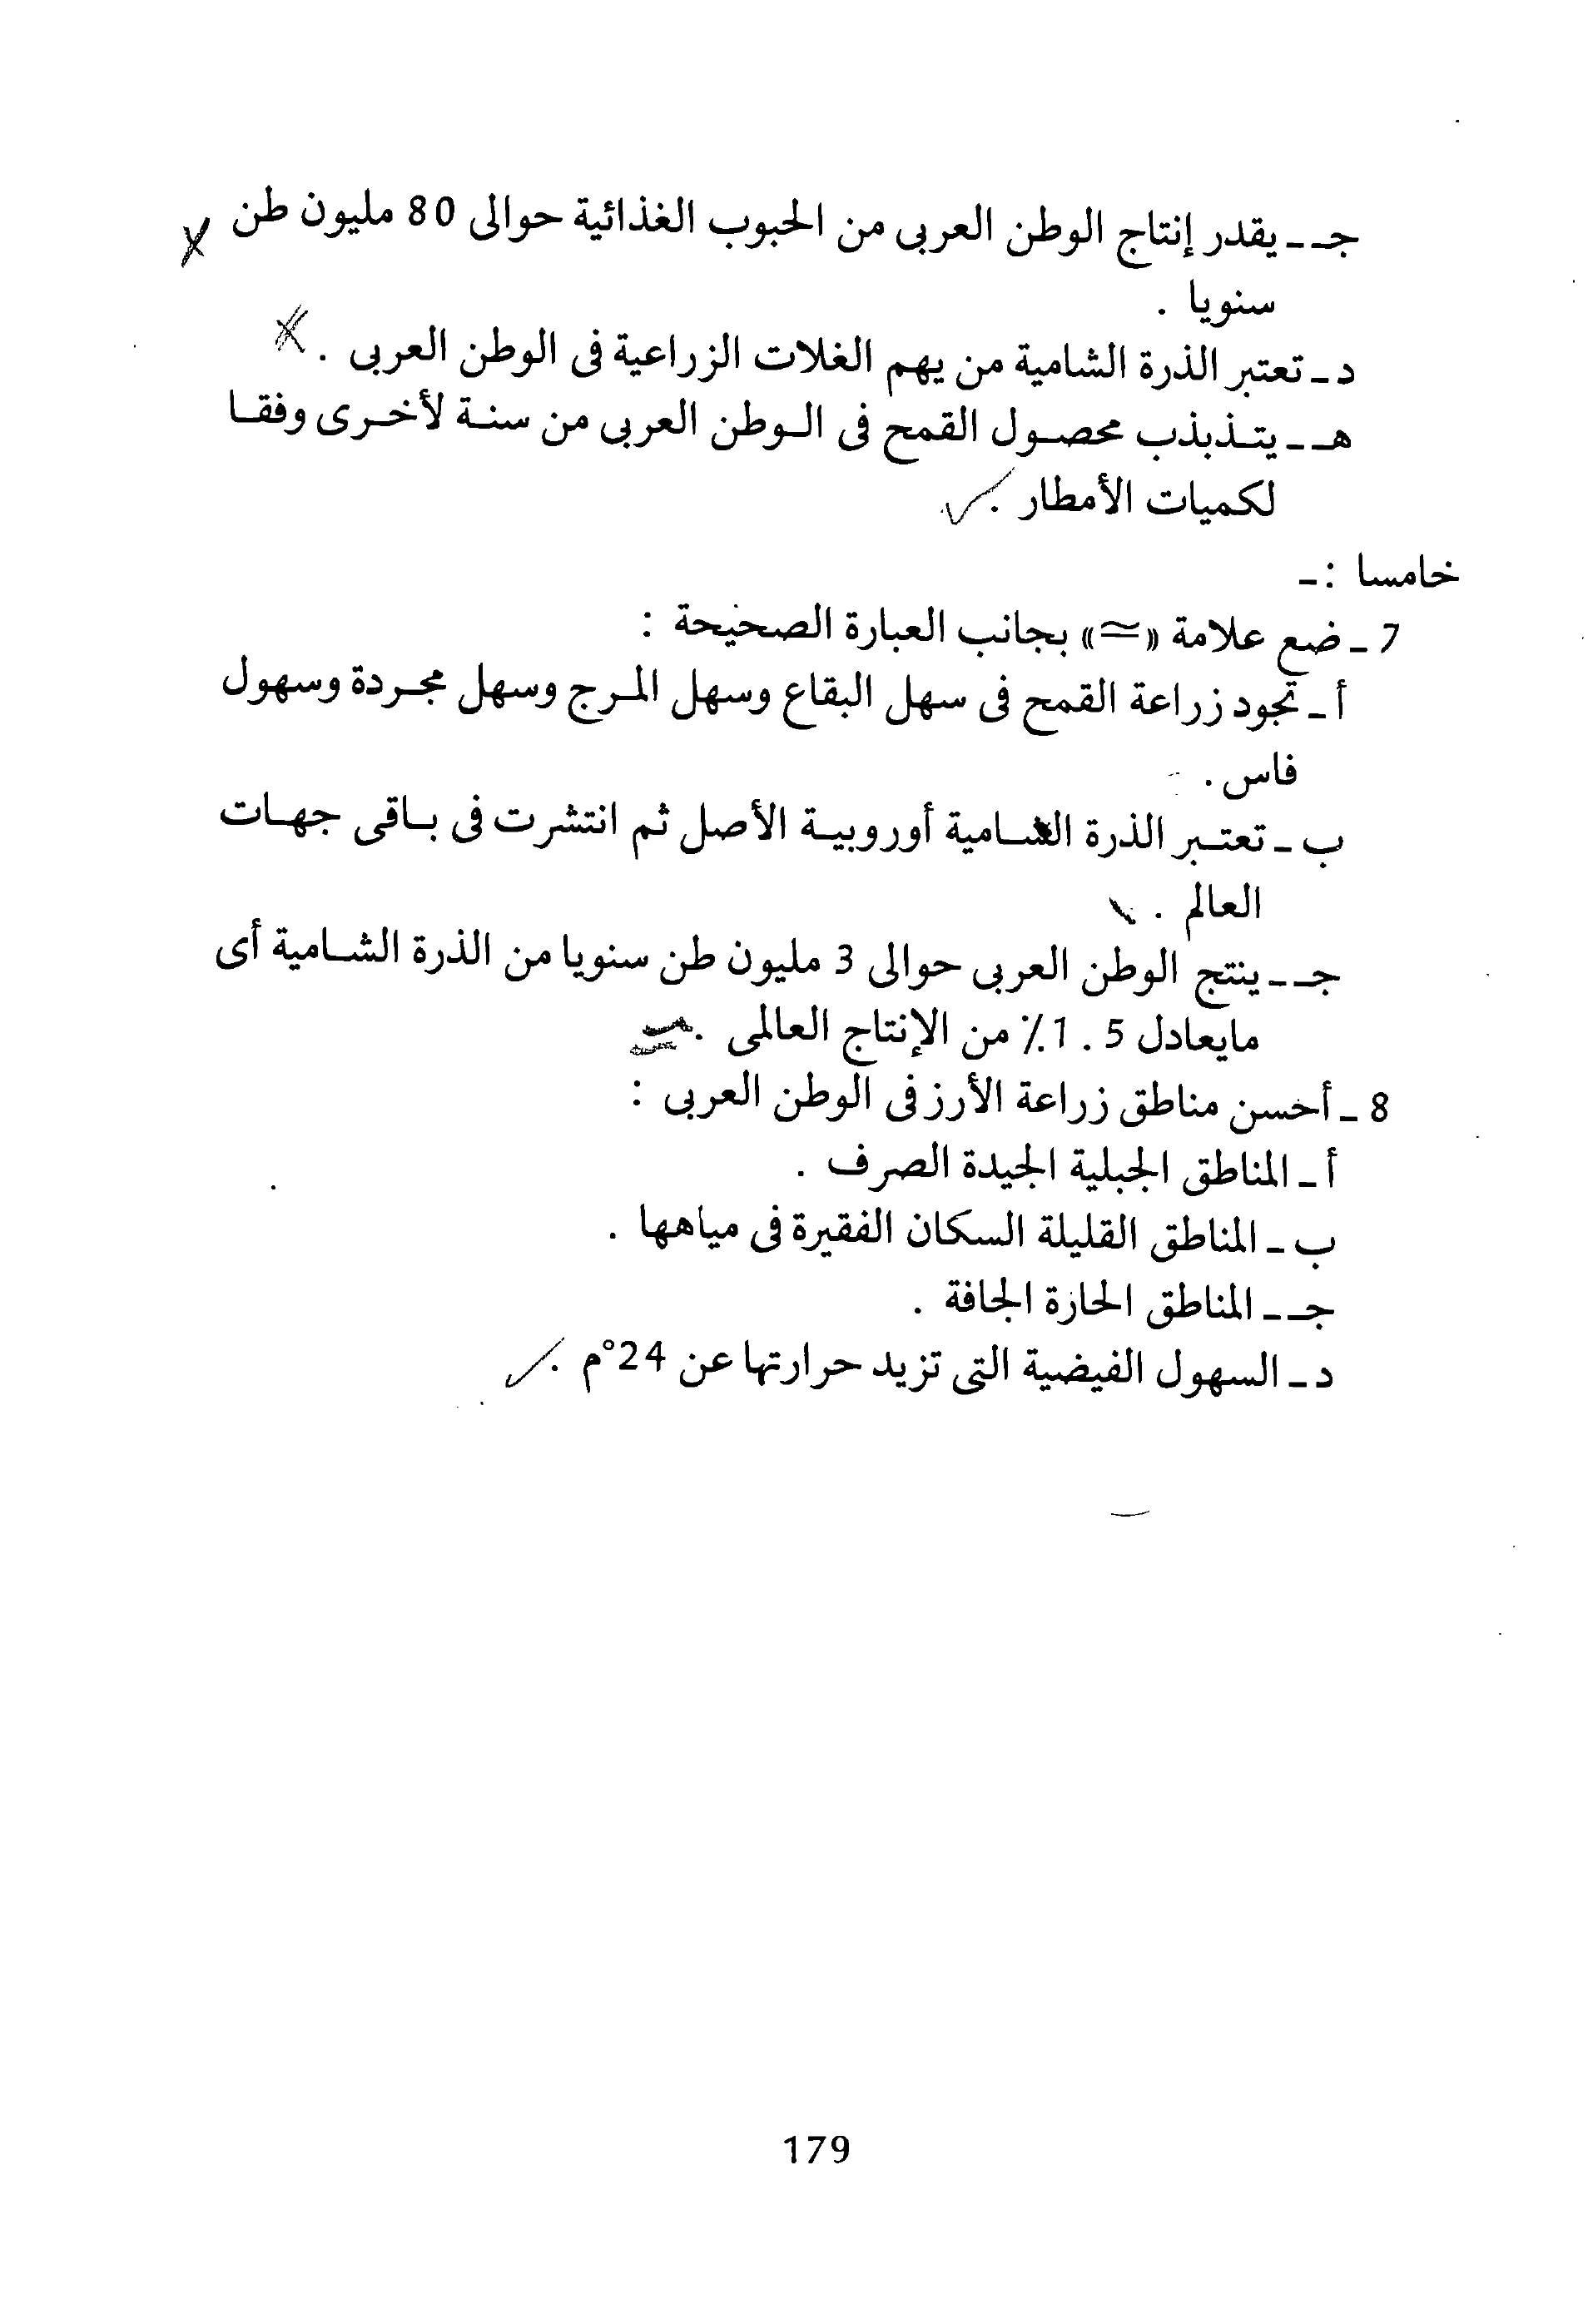 جـ ـ يقدر إنتاج الوطن العربى من الحبوب الغذائية حوالى 80 مليون طن
سنويا .
د ـ تعتبر الذرة الشامية من يهم الغلات الزراعية فى الوطن العربى .
هـ ـ يتـذبذب محصـول القمح فى الـوطن العربى من سنـة لأخـرى وفقـا
لكميات الأمطار .
خامسا : ـ
7 ـ ضع علامة «≃» بجانب العبارة الصحيحة :
أ ـ تجود زراعة القمح فى سهل البقاع وسهل المـرج وسهل مجـردة وسهول
فاس .
ب ـ تعتـبر الذرة الشـامية أوروبيـة الأصل ثم انتشرت فى بـاقى جهـات
العالم .
جـ ـ ينتج الوطن العربى حوالى 3 مليون طن سنويا من الذرة الشـامية أى
مايعادل 5 . 1٪ من الإنتاج العالمى .
8 ـ أحسن مناطق زراعة الأرز فى الوطن العربى :
أ ـ المناطق الجبلية الجيدة الصرف .
ب ـ المناطق القليلة السكان الفقيرة فى مياهها .
جـ ـ المناطق الحارة الجافة .
د ـ السهول الفيضية التى تزيد حرارتها عن 24°م .
179